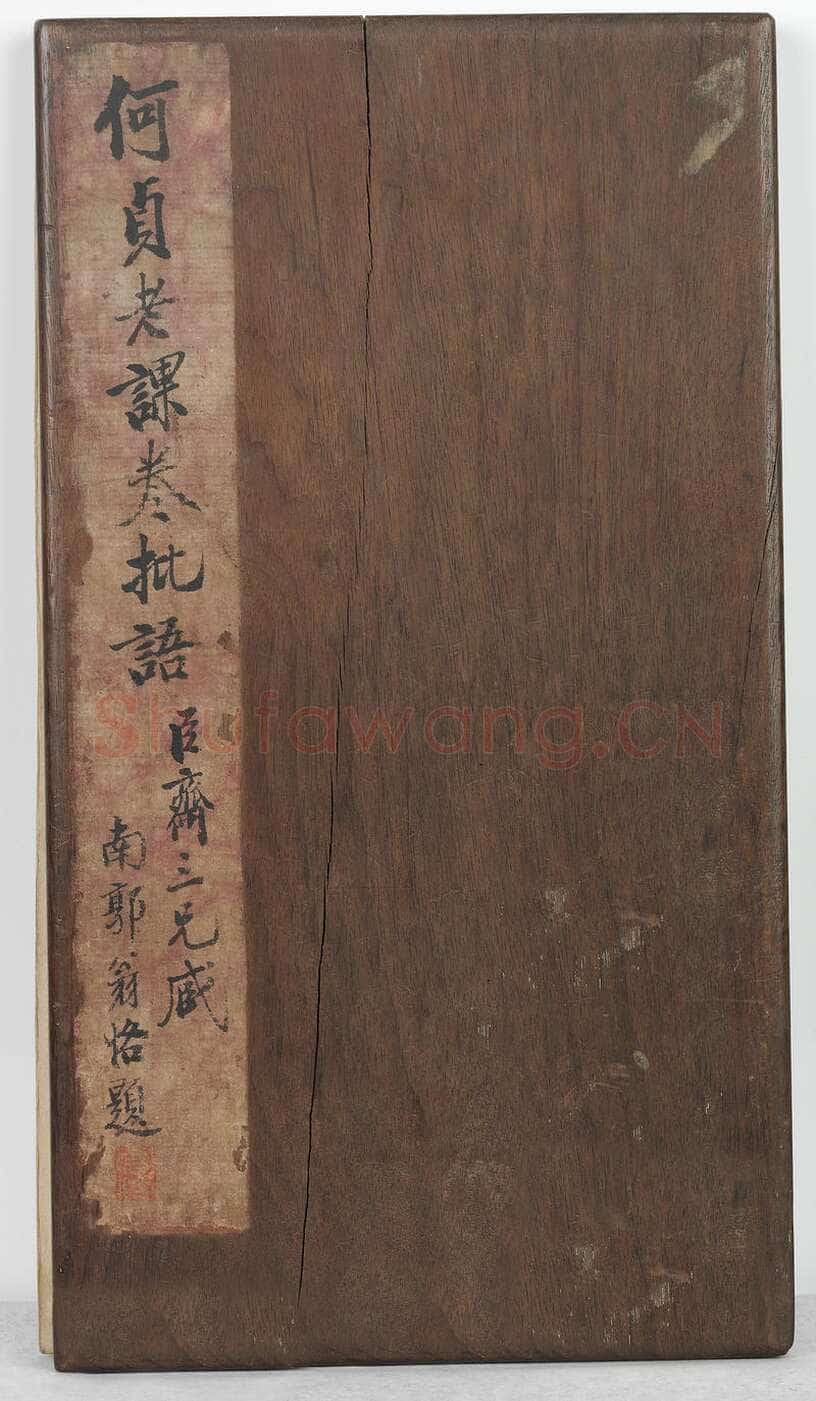 何貞老課卷批語
臣齋三兄咸
南郭翁恪題
Shufawang.CN